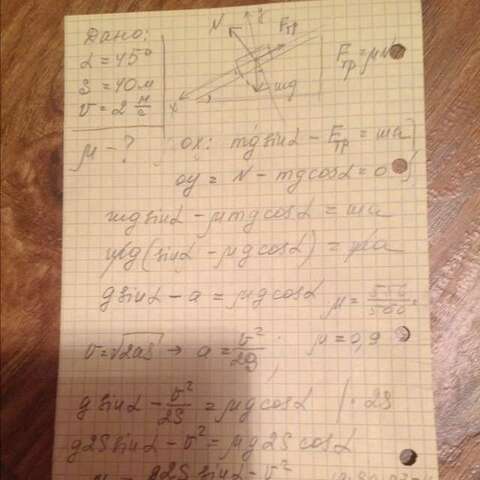 Дано:
α = 45°
S = 40 м
v = 2 м/с
μ - ?
N
y
Fтр
mg
x
Fтр = μN
ox: mg sinα - Fтр = ma
oy = N - mg cosα = 0
mg sinα - μmg cosα = ma
mg(sinα - μg cosα) = ma
g sinα - a = μg cosα
v = √2aS → a = v²/2S ;
μ = 0,9
g sinα - v²/2S = μg cosα | · 2S
g2S sinα - v² = μg 2S cosα
g2S sinα - v²